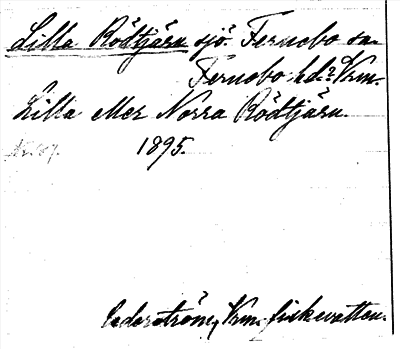 Lilla Rödtjärn sjö. Fernebo sn.
Fernebo hd. Vrm.
Lilla eller Norra Rödtjärn.
1895.
Cederström, Vrm. fiskevatten.